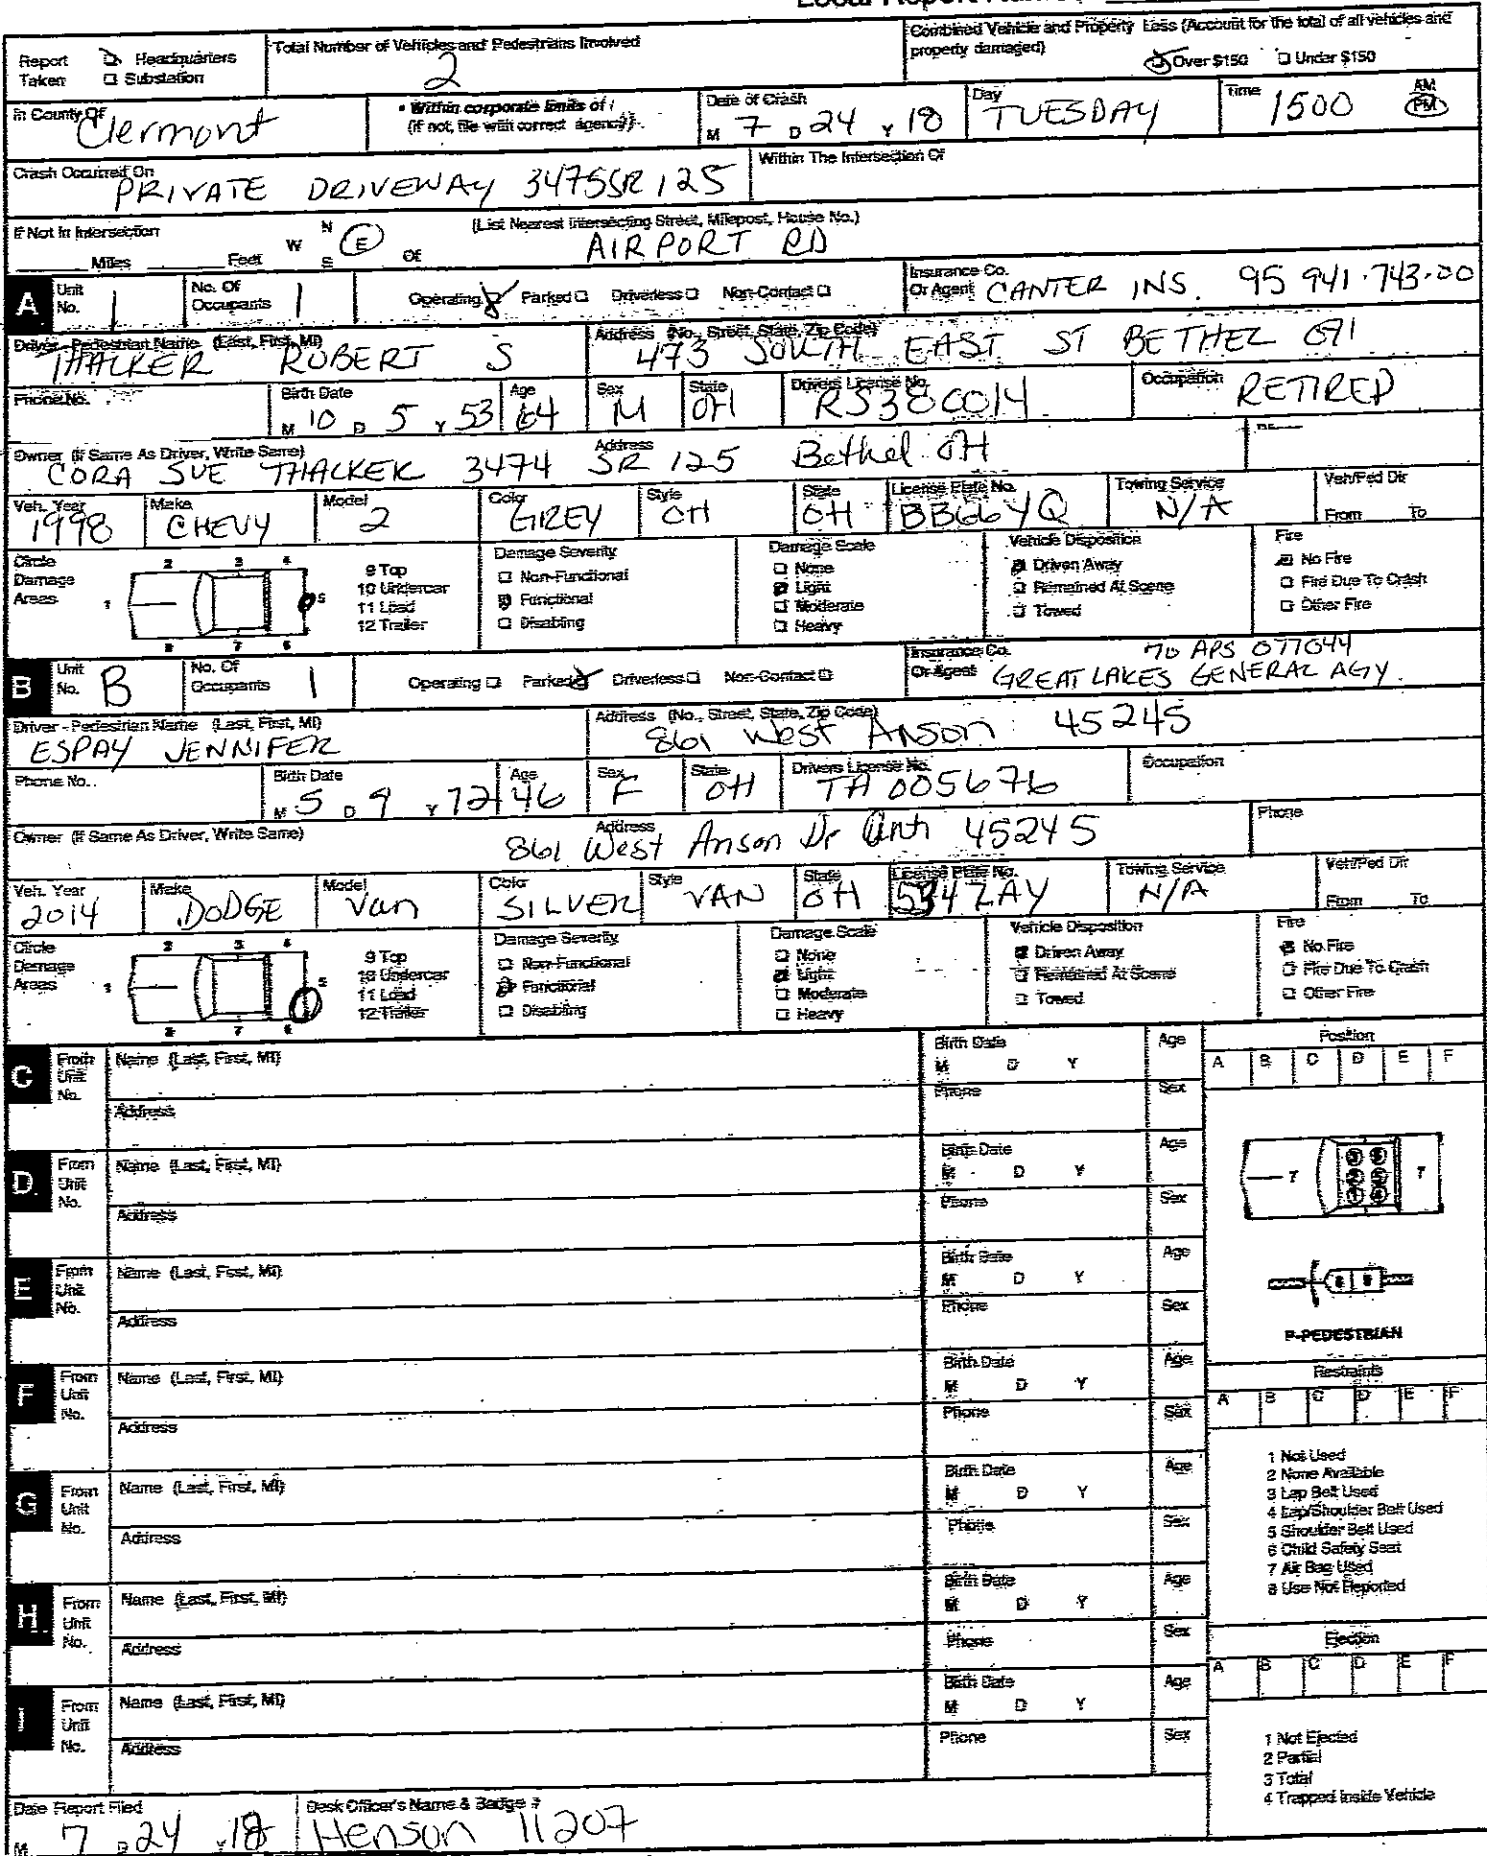 Report Taken Headquarters Substation
Total Number of Vehicles and Pedestrians Involved 2
Combined Vehicle and Property Loss (Account for the total of all vehicles and property damaged) Over $150 Under $150
In County Of Clermont
• Within corporate limits of (If not, file with correct agency)
Date of Crash M 7 D 24 Y 18
Day TUESDAY
Time 1500 AM PM
Crash Occurred On PRIVATE DRIVEWAY 3475 SR 125
Within The Intersection Of
If Not In Intersection
Miles Feet W N E S Of
(List Nearest Intersecting Street, Milepost, House No.) AIRPORT RD
A Unit No. 1
No. Of Occupants 1
Operating Parked Driverless Non-Contact
Insurance Co. Or Agent CANTER INS. 95 941-743-00
Driver - Pedestrian Name (Last, First, MI) THACKER ROBERT S
Address (No., Street, State, Zip Code) 473 SOUTH EAST ST BETHEL
Phone No.
Birth Date M 10 D 5 Y 53
Age 64
Sex M
State OH
Drivers License No. RS380014
Occupation RETIRED
Owner (If Same As Driver, Write Same) CORA SUE THACKER
Address 3474 SR 125 Bethel OH
Veh. Year 1998
Make CHEVY
Model 2
Color GREY
Style OH
State OH
License Plate No. BB66YQ
Towing Service N/A
Veh/Ped Dir From To
Circle Damage Areas 1 2 3 4 5 6 7 8
9 Top
10 Undercar
11 Load
12 Trailer
Damage Severity
Non-Functional
Functional
Disabling
Damage Scale
None
Light
Moderate
Heavy
Vehicle Disposition
Driven Away
Remained At Scene
Towed
Fire
No Fire
Fire Due To Crash
Other Fire
B Unit No. B
No. Of Occupants 1
Operating Parked Driverless Non-Contact
Insurance Co. Or Agent 70 APS 077044
GREAT LAKES GENERAL AGY.
Driver - Pedestrian Name (Last, First, MI) ESPAY JENNIFER
Address (No., Street, State, Zip Code) 861 West Anson 45245
Phone No.
Birth Date M 5 D 9 Y 72
Age 46
Sex F
State OH
Drivers License No. TA005676
Occupation
Owner (If Same As Driver, Write Same)
Address 861 West Anson Dr 45245
Phone
Veh. Year 2014
Make DODGE
Model Van
Color SILVER
Style VAN
State OH
License Plate No. ZAY
Towing Service N/A
Veh/Ped Dir From To
Circle Damage Areas 1 2 3 4 5 6 7 8
9 Top
10 Undercar
11 Load
12 Trailer
Damage Severity
Non-Functional
Functional
Disabling
Damage Scale
None
Light
Moderate
Heavy
Vehicle Disposition
Driven Away
Remained At Scene
Towed
Fire
No Fire
Fire Due To Crash
Other Fire
C From Unit No. Name (Last, First, MI) Birth Date M D Y Age
Address Phone Sex
Position
A B C D E F
D From Unit No. Name (Last, First, MI) Birth Date M D Y Age
Address Phone Sex
E From Unit No. Name (Last, First, MI) Birth Date M D Y Age
Address Phone Sex
P-PEDESTRIAN
F From Unit No. Name (Last, First, MI) Birth Date M D Y Age
Address Phone Sex
Restraints
A B C D E F
G From Unit No. Name (Last, First, MI) Birth Date M D Y Age
Address Phone Sex
1 Not Used
2 None Available
3 Lap Belt Used
4 Lap/Shoulder Belt Used
5 Shoulder Belt Used
6 Child Safety Seat
7 Air Bag Used
8 Use Not Reported
H From Unit No. Name (Last, First, MI) Birth Date M D Y Age
Address Phone Sex
Ejection
A B C D E F
I From Unit No. Name (Last, First, MI) Birth Date M D Y Age
Address Phone Sex
1 Not Ejected
2 Partial
3 Total
4 Trapped Inside Vehicle
Date Report Filed M 7 D 24 Y 18
Desk Officer's Name & Badge # Henson 11207